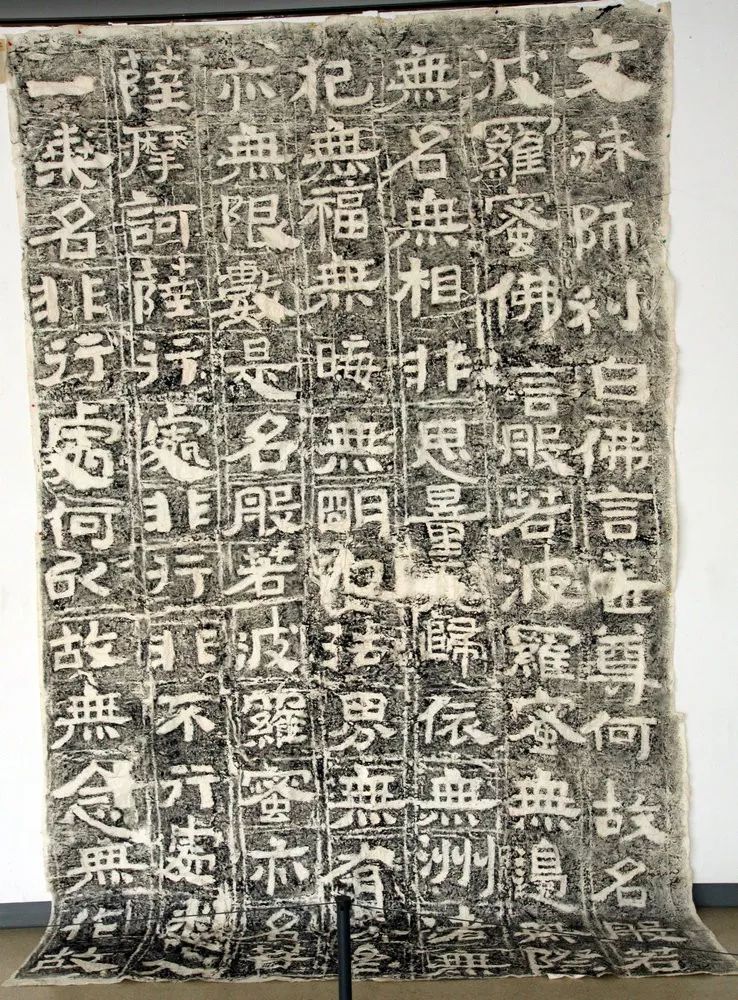 文殊師利白佛言世尊何故名般若
波羅蜜佛言般若波羅蜜無邊無際
無名無相非思量歸依無洲渚無
犯無福無晦無明如法界無有
亦無限數是名般若波羅蜜亦名菩
薩摩訶薩行處非行非不行處悉入
一乘名非行處何以故無念無作故